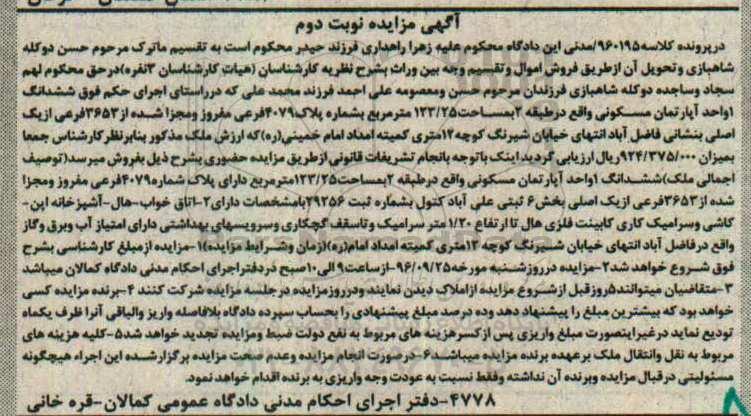 آگهی مزایده نوبت دوم
درپرونده کلاسه۹۶۰۱۹۵/مدنی این دادگاه محکوم علیه زهرا راهداری فرزند حیدر محکوم است به تقسیم ماترک مرحوم حسن دوکله
شاهبازی وتحویل آن ازطریق فروش اموال وتقسیم وجه بین وراث بشرح نظریه کارشناسان (هیات کارشناسان ۳نفره)درحق محکوم لهم
سجاد وساجده دوکله شاهبازی فرزندان مرحوم حسن ومعصومه علی احمد فرزند محمد علی که درراستای اجرای حکم فوق ششدانگ
۱واحد آپارتمان مسکونی واقع درطبقه ۲بمساحت۱۲۳/۲۵ مترمربع بشماره پلاک۴۰۷۹فرعی مفروز ومجزا شده از۳۶۵۳فرعی ازیک
اصلی بنشانی فاضل آباد انتهای خیابان شیرنگ کوچه ۱۲متری کمیته امداد امام خمینی(ره)که ارزش ملک مذکور بنابرنظر کارشناس جمعا
بمیزان ۹۲۴/۳۷۵/۰۰۰ریال ارزیابی گردید اینک باتوجه بانجام تشریفات قانونی ازطریق مزایده حضوری بشرح ذیل بفروش میرسد(توصیف
اجمالی ملک)ششدانگ ۱واحد آپارتمان مسکونی واقع درطبقه ۲بمساحت۱۲۳/۲۵مترمربع دارای پلاک شماره۴۰۷۹فرعی مفروز ومجزا
شده از۳۶۵۳فرعی ازیک اصلی بخش۶ ثبتی علی آباد کتول بشماره ثبت ۲۹۲۵۶بامشخصات دارای۲-اتاق خواب-هال-آشپزخانه اپن-
کاشی وسرامیک کاری کابینت فلزی هال تا ارتفاع ۱/۲۰متر سرامیک وتاسقف گچکاری وسرویسهای بهداشتی دارای امتیاز آب وبرق وگاز
واقع درفاضل آباد انتهای خیابان شیرنگ کوچه ۱۲متری کمیته امداد امام(ره)(زمان وشرایط مزایده)۱-مزایده ازمبلغ کارشناسی بشرح
فوق شروع خواهد شد۲-مزایده درروزشنبه مورخه۹۶/۰۹/۲۵-ازساعت۹الی۱۰صبح دردفتراجرای احکام مدنی دادگاه کمالان میباشد
۳-متقاضیان میتوانند۵روزقبل ازشروع مزایده ازاملاک دیدن نمایند ودرروزمزایده درجلسه مزایده شرکت کنند ۴-برنده مزایده کسی
خواهد بود که بیشترین مبلغ را پیشنهاد دهد وده درصد مبلغ پیشنهادی را بحساب سپرده دادگاه بلافاصله واریز والباقی آنرا ظرف یکماه
تودیع نماید درغیراینصورت مبلغ واریزی پس ازکسرهزینه های مربوط به نفع دولت ضبط ومزایده تجدید خواهد شد۵-کلیه هزینه های
مربوط به نقل وانتقال ملک برعهده برنده مزایده میباشد۶-درصورت انجام مزایده وعدم صحت مزایده برگزارشده این اجراء هیچگونه
مسئولیتی درقبال مزایده وبرنده آن نداشته وفقط نسبت به عودت وجه واریزی به برنده اقدام خواهد نمود.
۴۷۷۸-دفتر اجرای احکام مدنی دادگاه عمومی کمالان-قره خانی